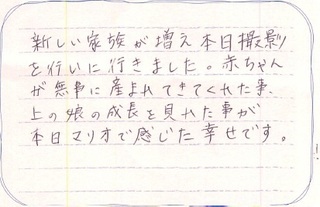 新しい家族が増え本日撮影
を行いに行きました。赤ちゃん
が無事に産まれてきてくれた事、
上の娘の成長を見れた事が
本日マリオで感じた幸せです。